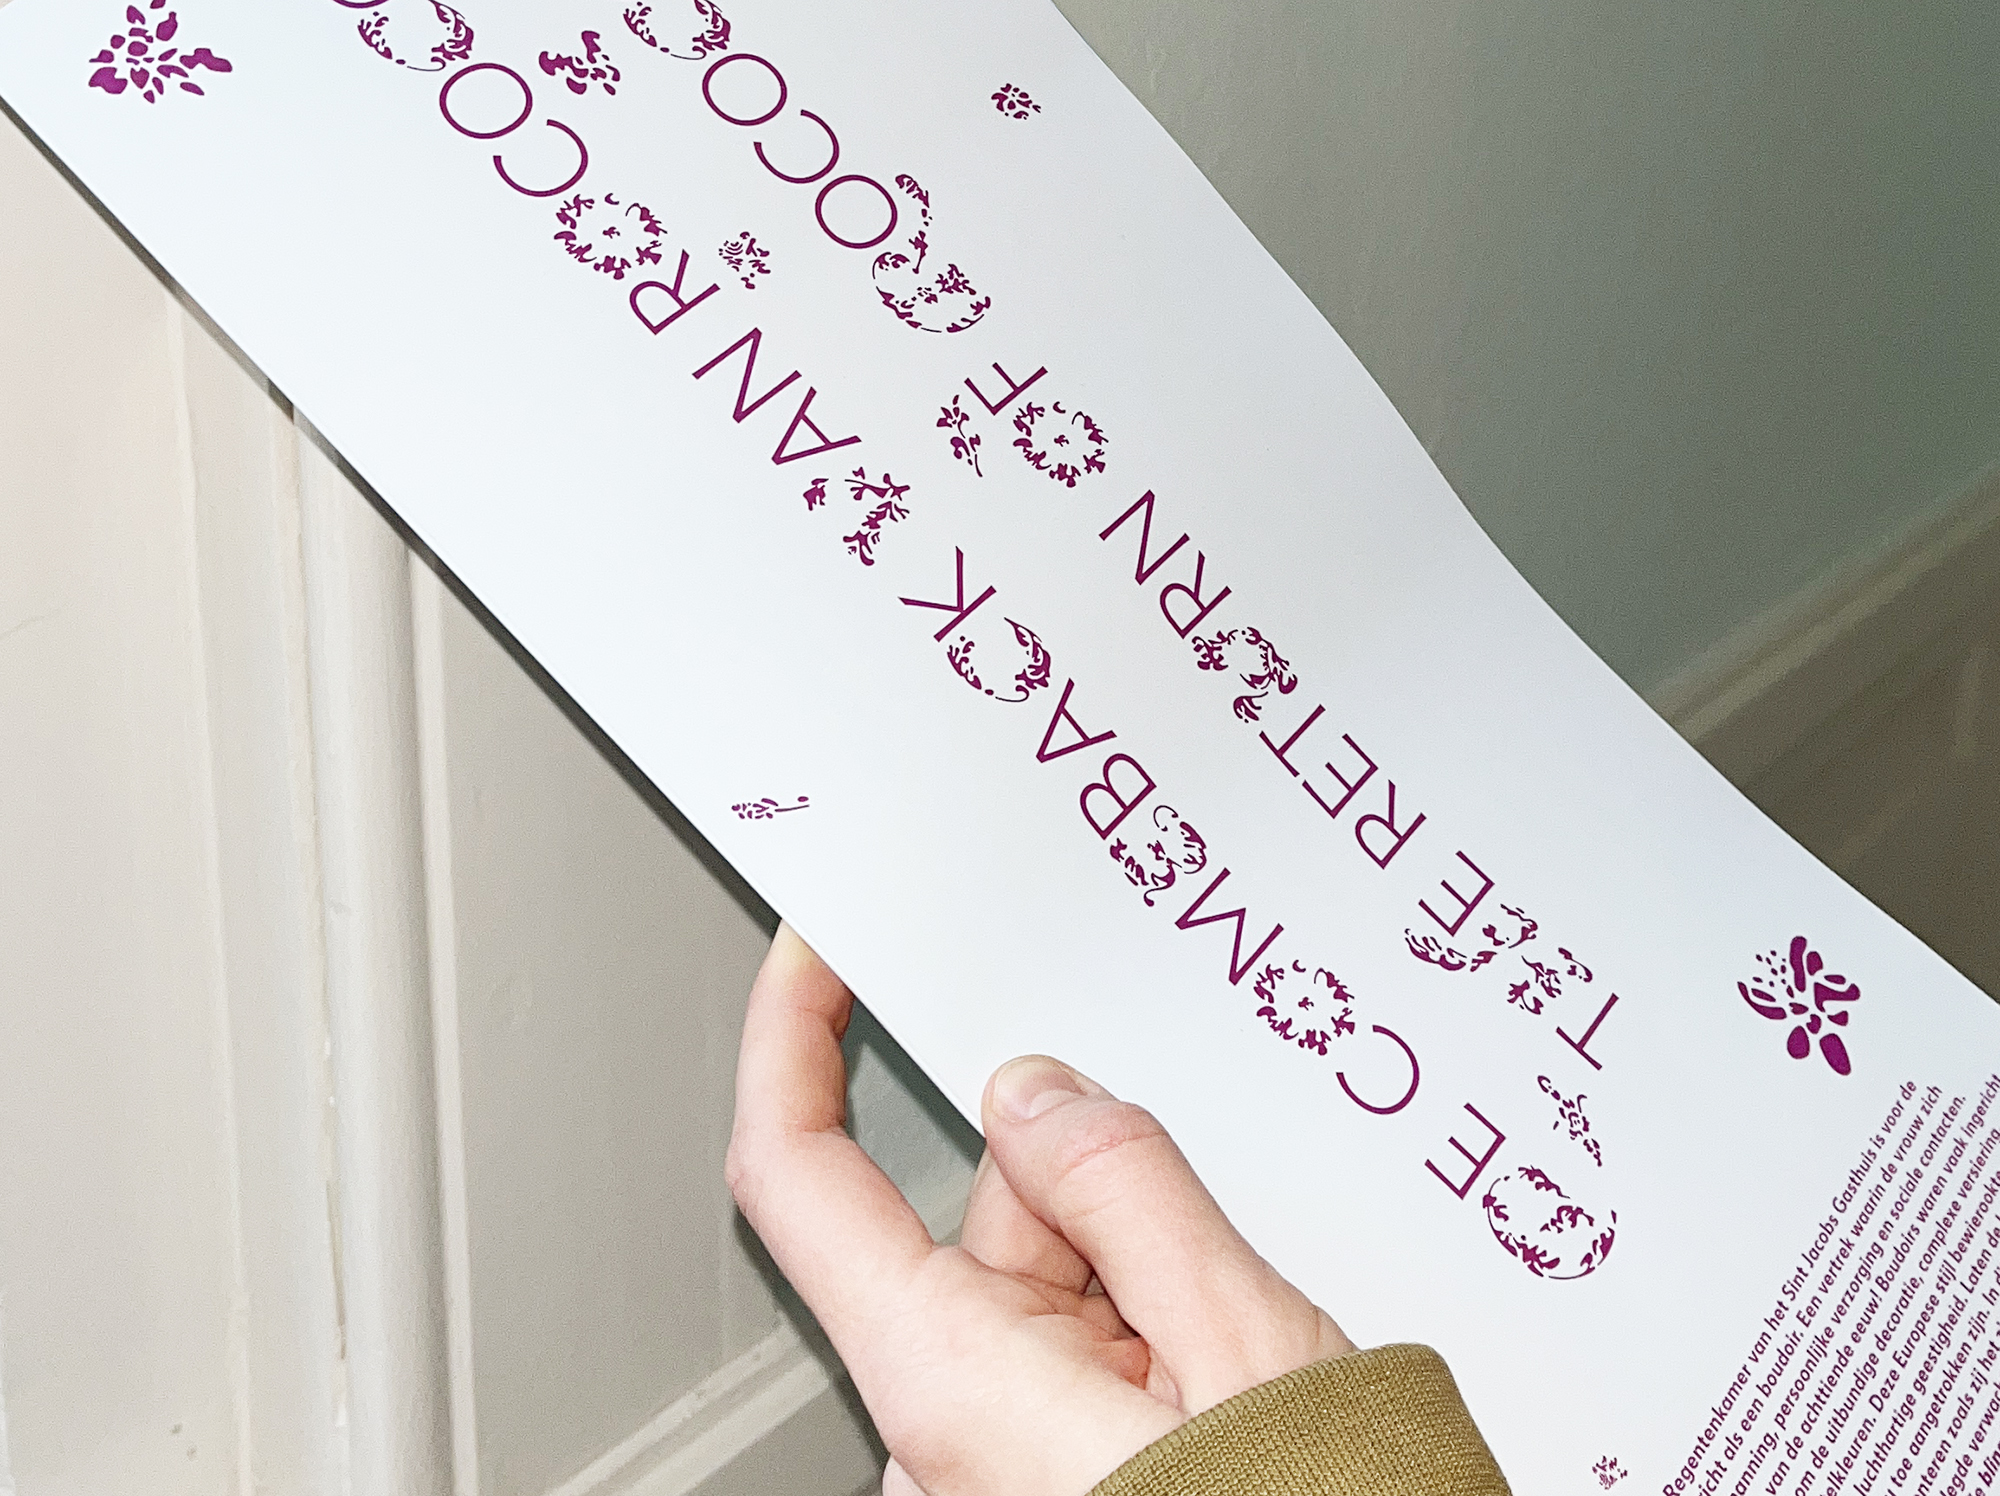 DE COMEBACK VAN ROCOCO
THE RETURN OF ROCOC
Regentenkamer van het Sint Jacobs Gasthuis is voor de
richt als een boudoir. Een vertrek waarin de vrouw zich
anning, persoonlijke verzorging en sociale contacten.
van de achttiende eeuw! Boudoirs waren vaak ingericht
om de uitbundige decoratie, complexe versiering
elkleuren. Deze Europese stijl bewierookte
luchthartige geestigheid. Laten de
toe aangetrokken zijn. In
nteren zoals zij het
legde